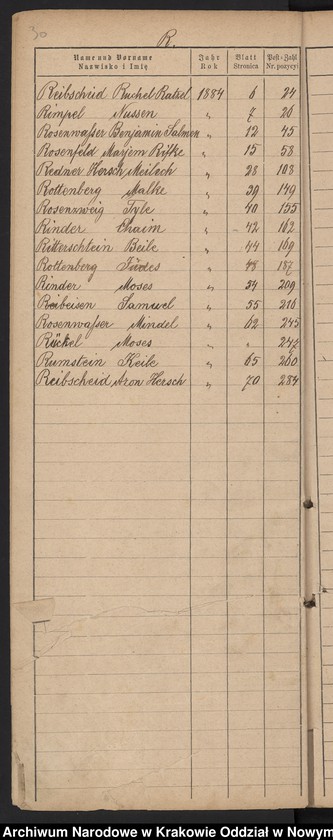 30
R.
Name und Vorname Jahr Blatt Post-Zahl
Nazwisko i Imię Rok Stronica Nr. pozycyi
Reibscheid Ruchel Ratzel 1884 6 24
Rimpel Nussen " 7 26
Rosenwaſser Benjamin Salmon " 12 45
Rosenfeld Marjem Rifke " 15 58
Redner Hersch Meilech " 28 108
Rottenberg Malke " 39 149
Rosenzweig Tyle " 40 155
Rinder Chaim " 42 162
Ritterschtein Beile " 44 169
Rottenberg Judes " 48 187
Rinder Moses " 54 209
Reibeisen Samuel " 55 216
Rosenwaſser Mindel " 62 245
Rückel Moses " " 247
Rumstein Keile " 65 260
Reibscheid Aron Hersch " 70 284
Archiwum Narodowe w Krakowie Oddział w Nowym